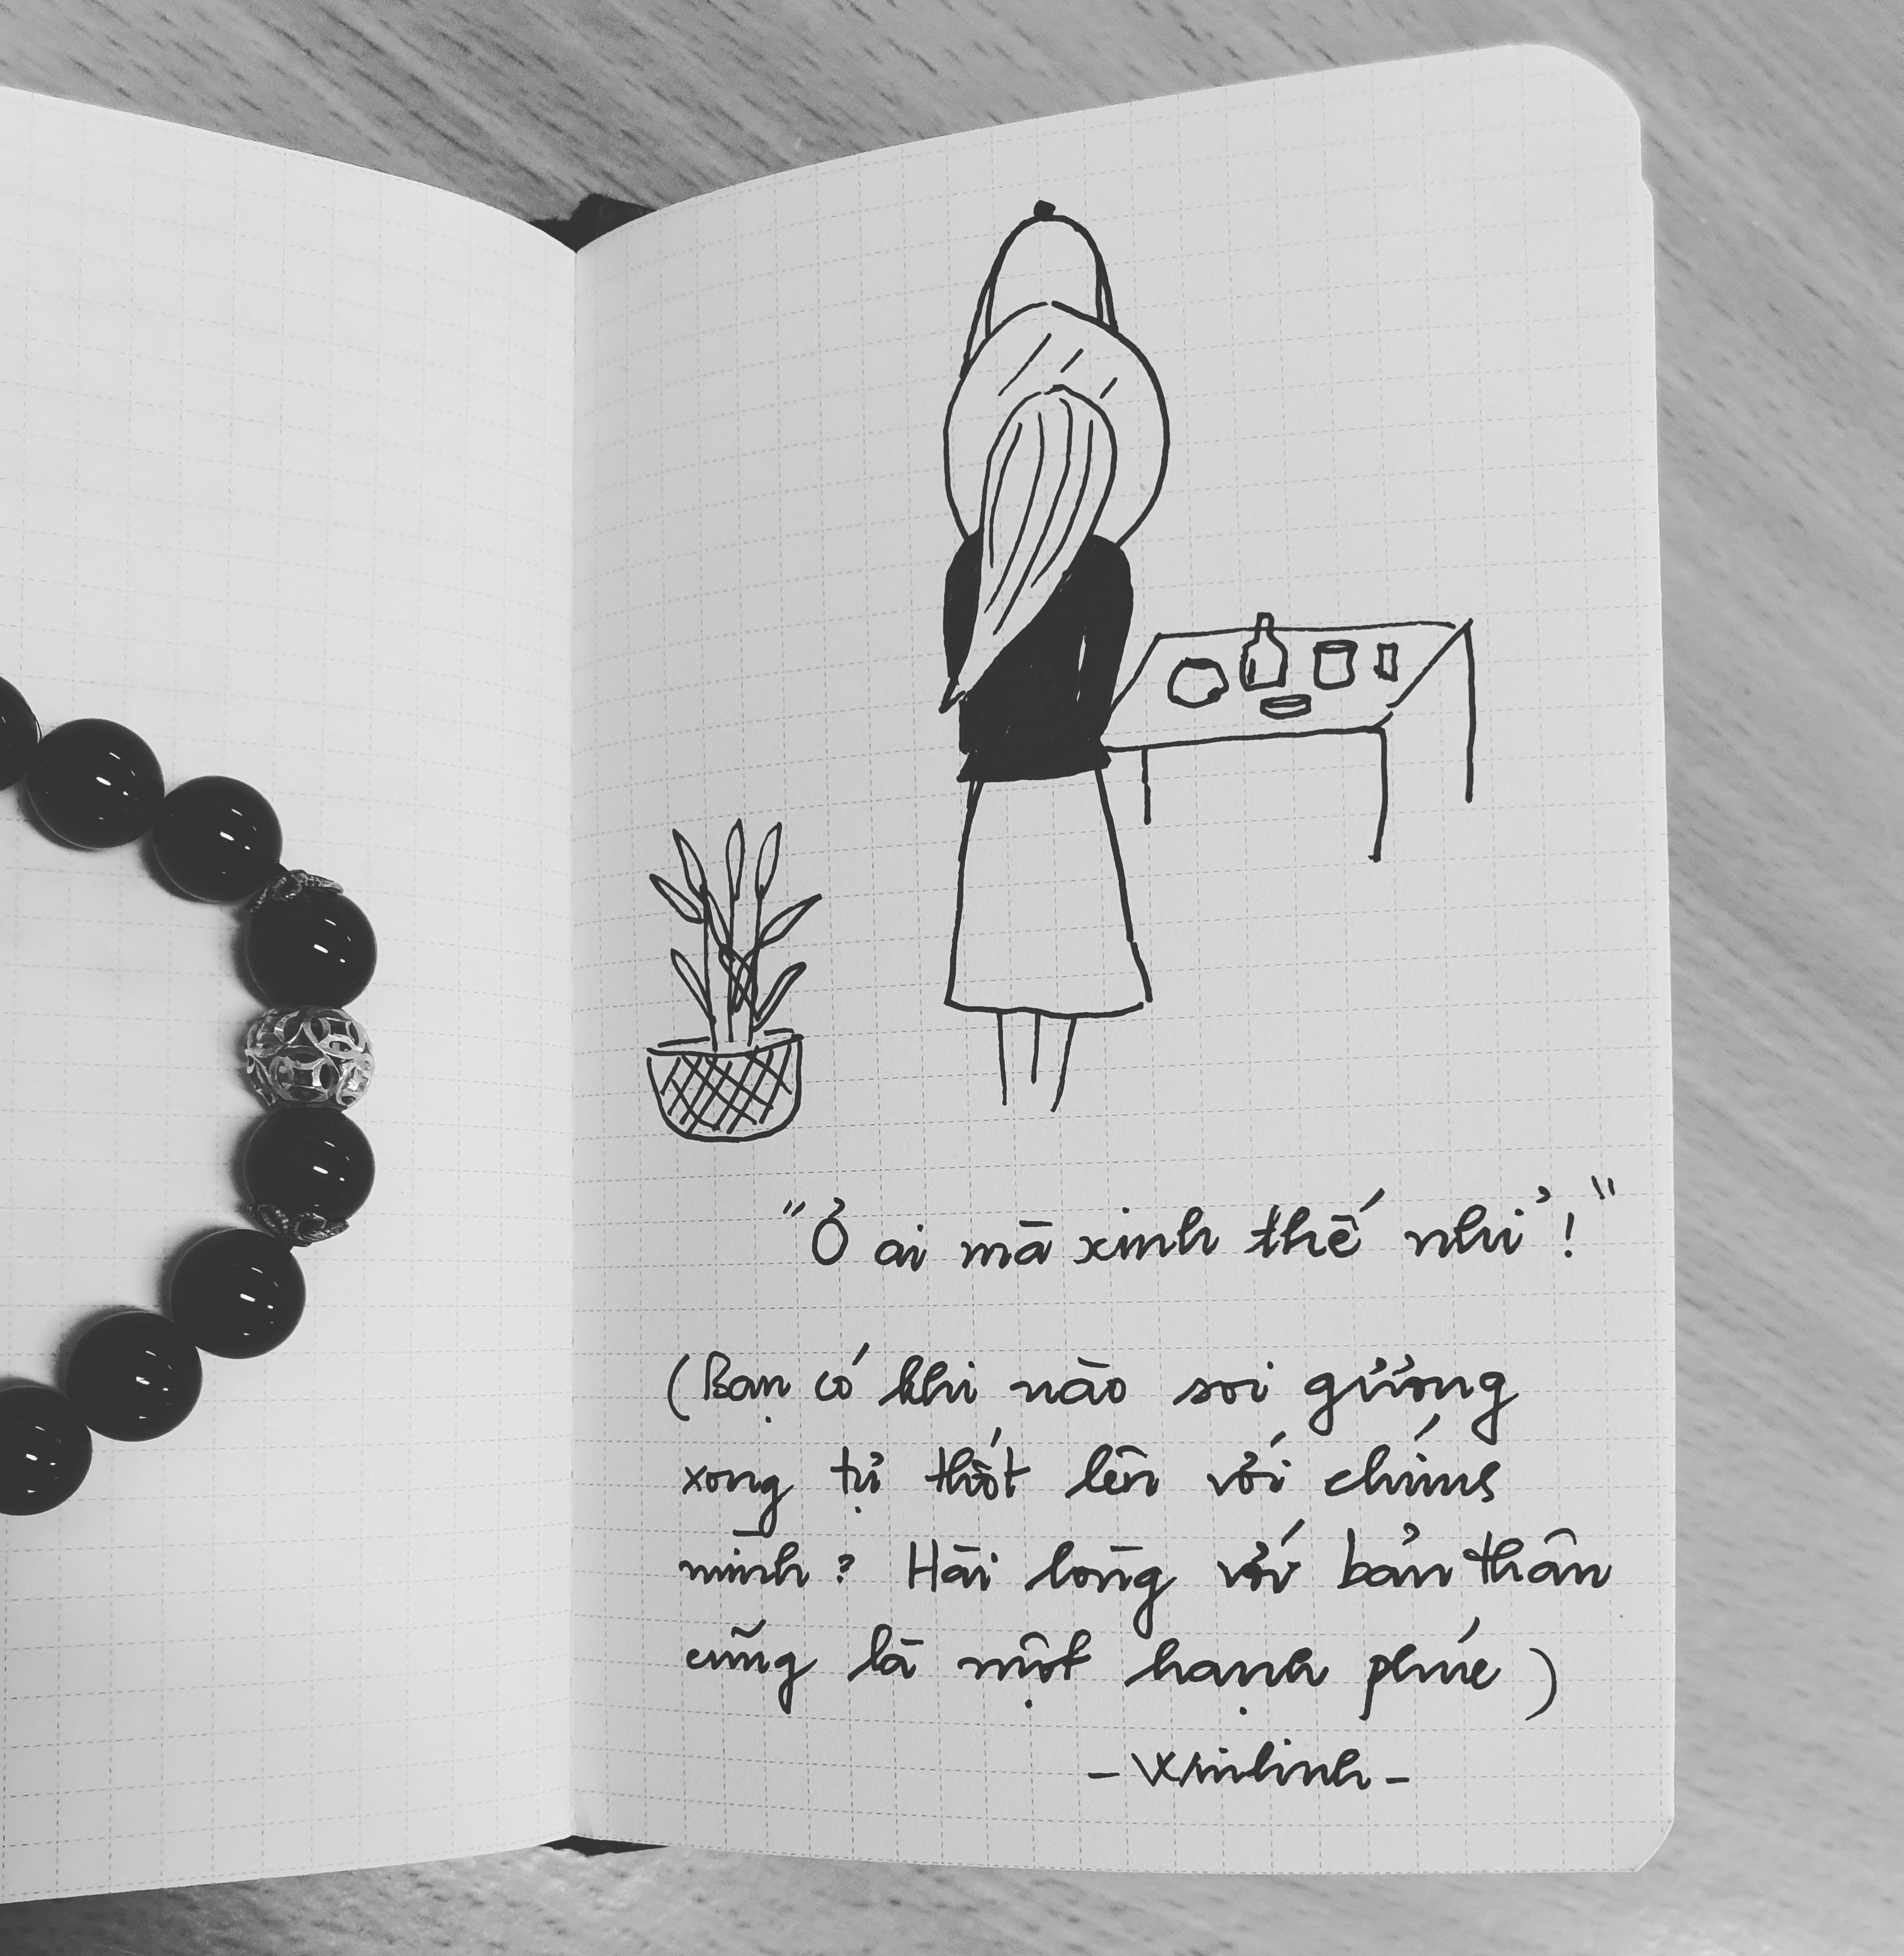 "Ở ai mà xinh thế nhỉ!"
(Bạn có khi nào soi gương
xong tự thốt lên với chính
mình? Hài lòng với bản thân
cũng là một hạnh phúc)